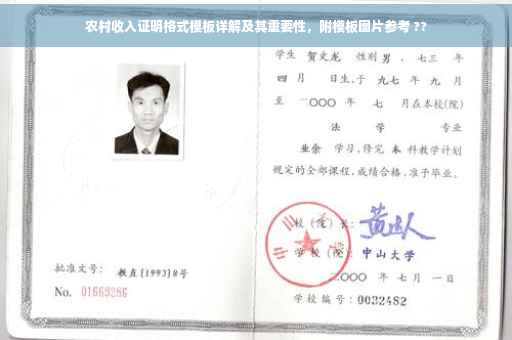 农村收入证明格式模板详解及其重要性，附模板图片参考 ??
学生 贺文龙 性别 男 、七三 年
四 月 日生,于 九七 年 九 月
至 二〇〇〇 年 七 月在本校(院)
法 学 专业
业余 学习,修完 本 科教学计划
规定的全部课程,成绩合格,准予毕业。
校 (院) 长:
学 校 (院): 中山大学
二〇〇〇 年 七 月 一 日
学校编号: 0032482
批准文号: 教直[1993]8号
No. 01669286